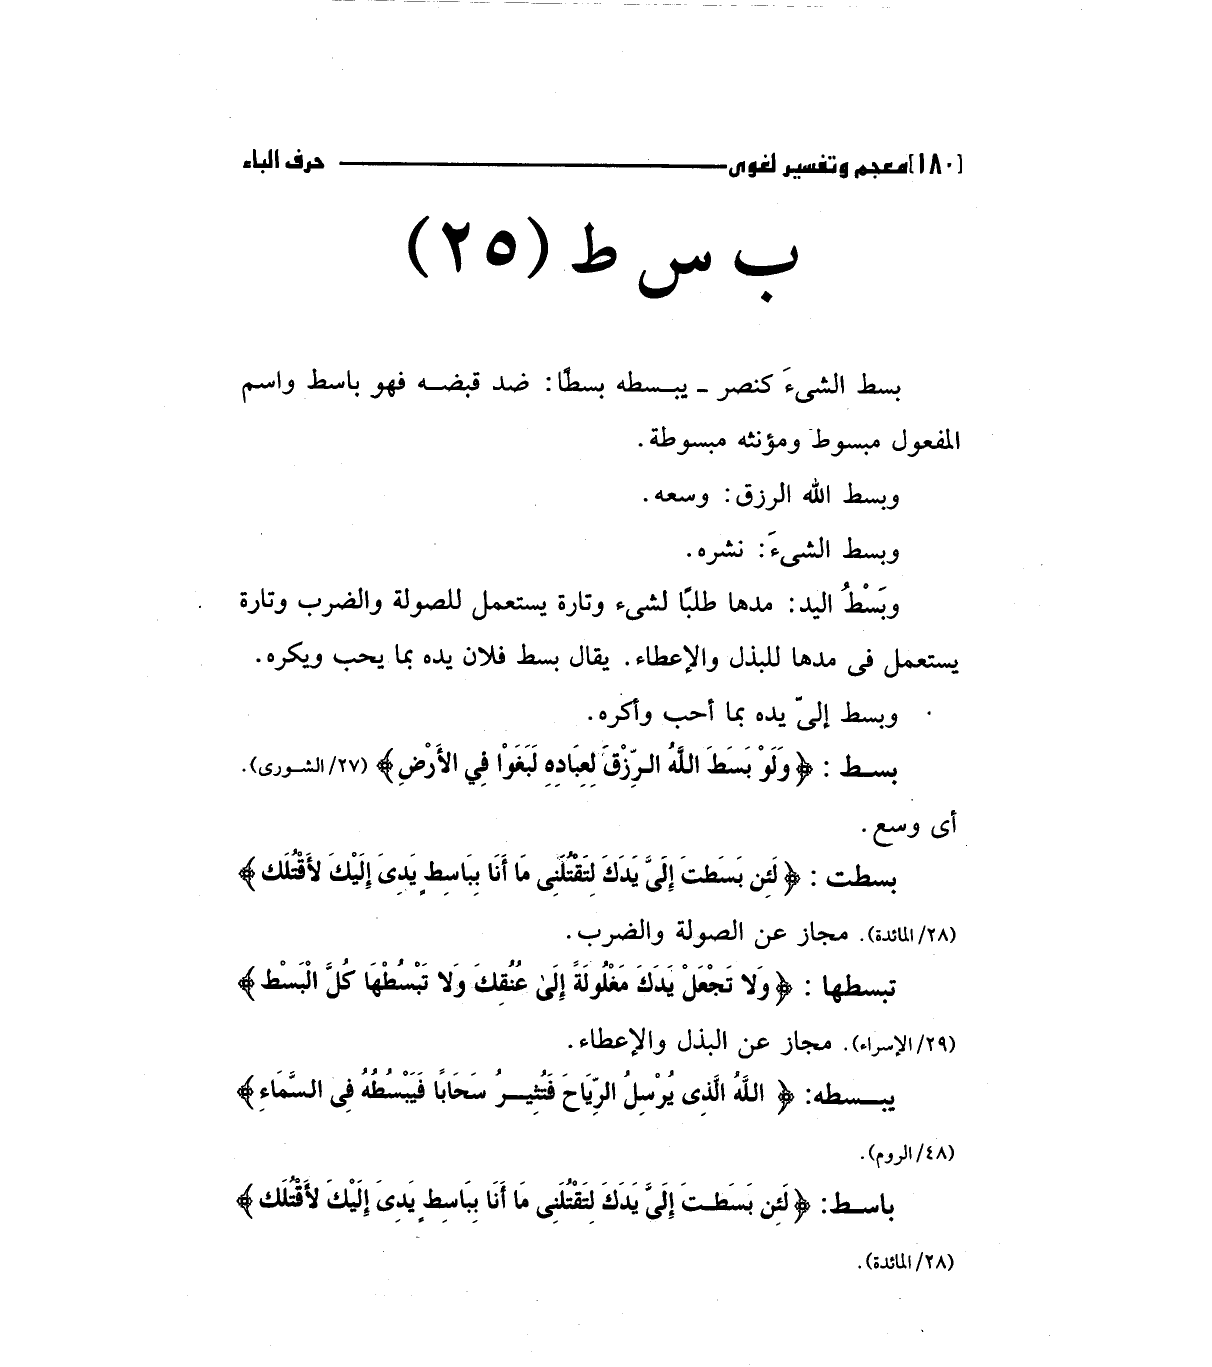 [١٨٠] معجم وتفسير لغوى ــــــ حرف الباء
ب س ط (٢٥)
بسط الشىءَ كنصر ـ يبسطه بسطًا: ضد قبضه فهو باسط واسم
المفعول مبسوط ومؤنثه مبسوطة.
وبسط الله الرزق: وسعه.
وبسط الشىءَ: نشره.
وبَسْطُ اليد: مدها طلبًا لشىء وتارة يستعمل للصولة والضرب وتارة
يستعمل فى مدها للبذل والإعطاء. يقال بسط فلان يده بما يحب ويكره.
وبسط إلىّ يده بما أحب وأكره.
بسط : ﴿وَلَوْ بَسَطَ اللَّهُ الرِّزْقَ لِعِبَادِهِ لَبَغَوْا فِي الأَرْضِ﴾ (٢٧/ الشورى).
أى وسع.
بسطت : ﴿لَئِن بَسَطتَ إِلَىَّ يَدَكَ لِتَقْتُلَنِى مَا أَنَا بِبَاسِطٍ يَدِىَ إِلَيْكَ لأَقْتُلَكَ﴾
(٢٨/ المائدة). مجاز عن الصولة والضرب.
تبسطها : ﴿وَلا تَجْعَلْ يَدَكَ مَغْلُولَةً إِلَىٰ عُنُقِكَ وَلا تَبْسُطْهَا كُلَّ الْبَسْطِ﴾
(٢٩/ الإسراء). مجاز عن البذل والإعطاء.
يبسطه: ﴿ اللَّهُ الَّذِى يُرْسِلُ الرِّيَاحَ فَتُثِيرُ سَحَابًا فَيَبْسُطُهُ فِى السَّمَاءِ﴾
(٤٨/ الروم).
باسط: ﴿لَئِن بَسَطتَ إِلَىَّ يَدَكَ لِتَقْتُلَنِى مَا أَنَا بِبَاسِطٍ يَدِىَ إِلَيْكَ لأَقْتُلَكَ﴾
(٢٨/ المائدة).